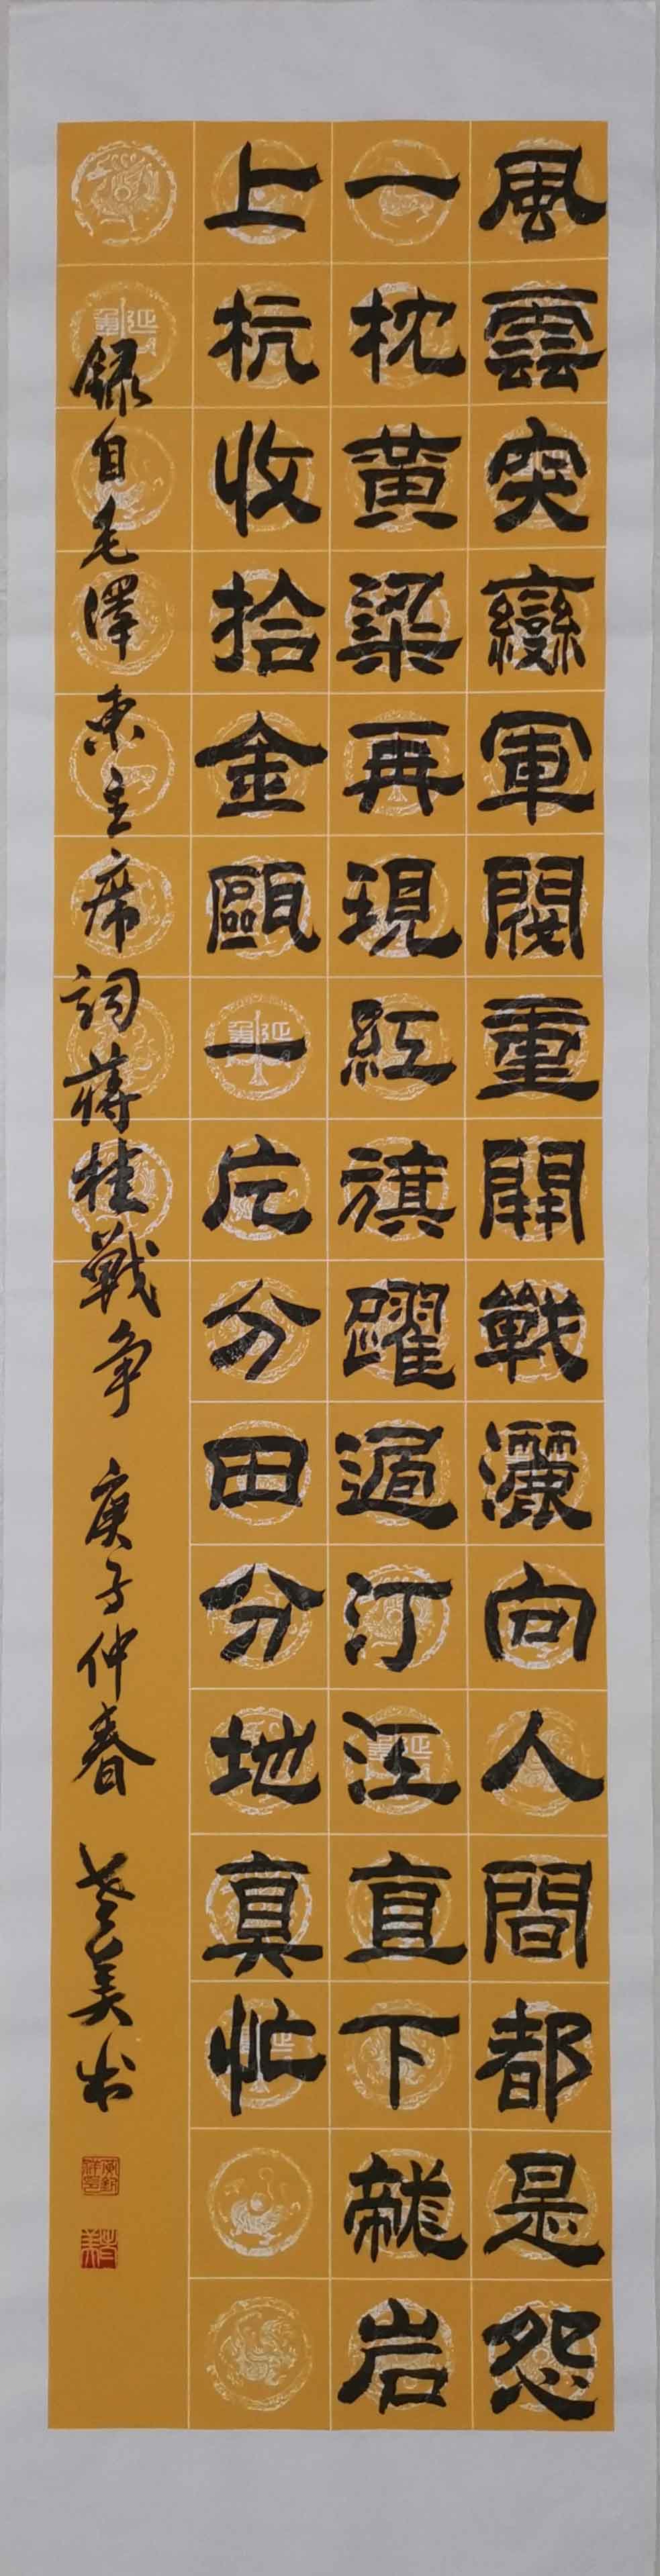 風雲突變軍閥重開戰灑向人間都是怨
一枕黃梁再現紅旗躍過汀江直下龍岩
上杭收拾金甌一片分田分地真忙
録自毛澤東主席詞蔣桂戰争 庚子仲春 美书